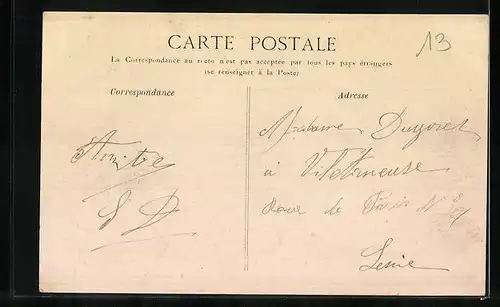 CARTE POSTALE
13
La Correspondance au recto n'est pas acceptée par tous les pays étrangers
(se renseigner à la Poste)
Correspondance
Adresse
Madame
à Viletaneuse
de Paris N°
Seine
Amitié